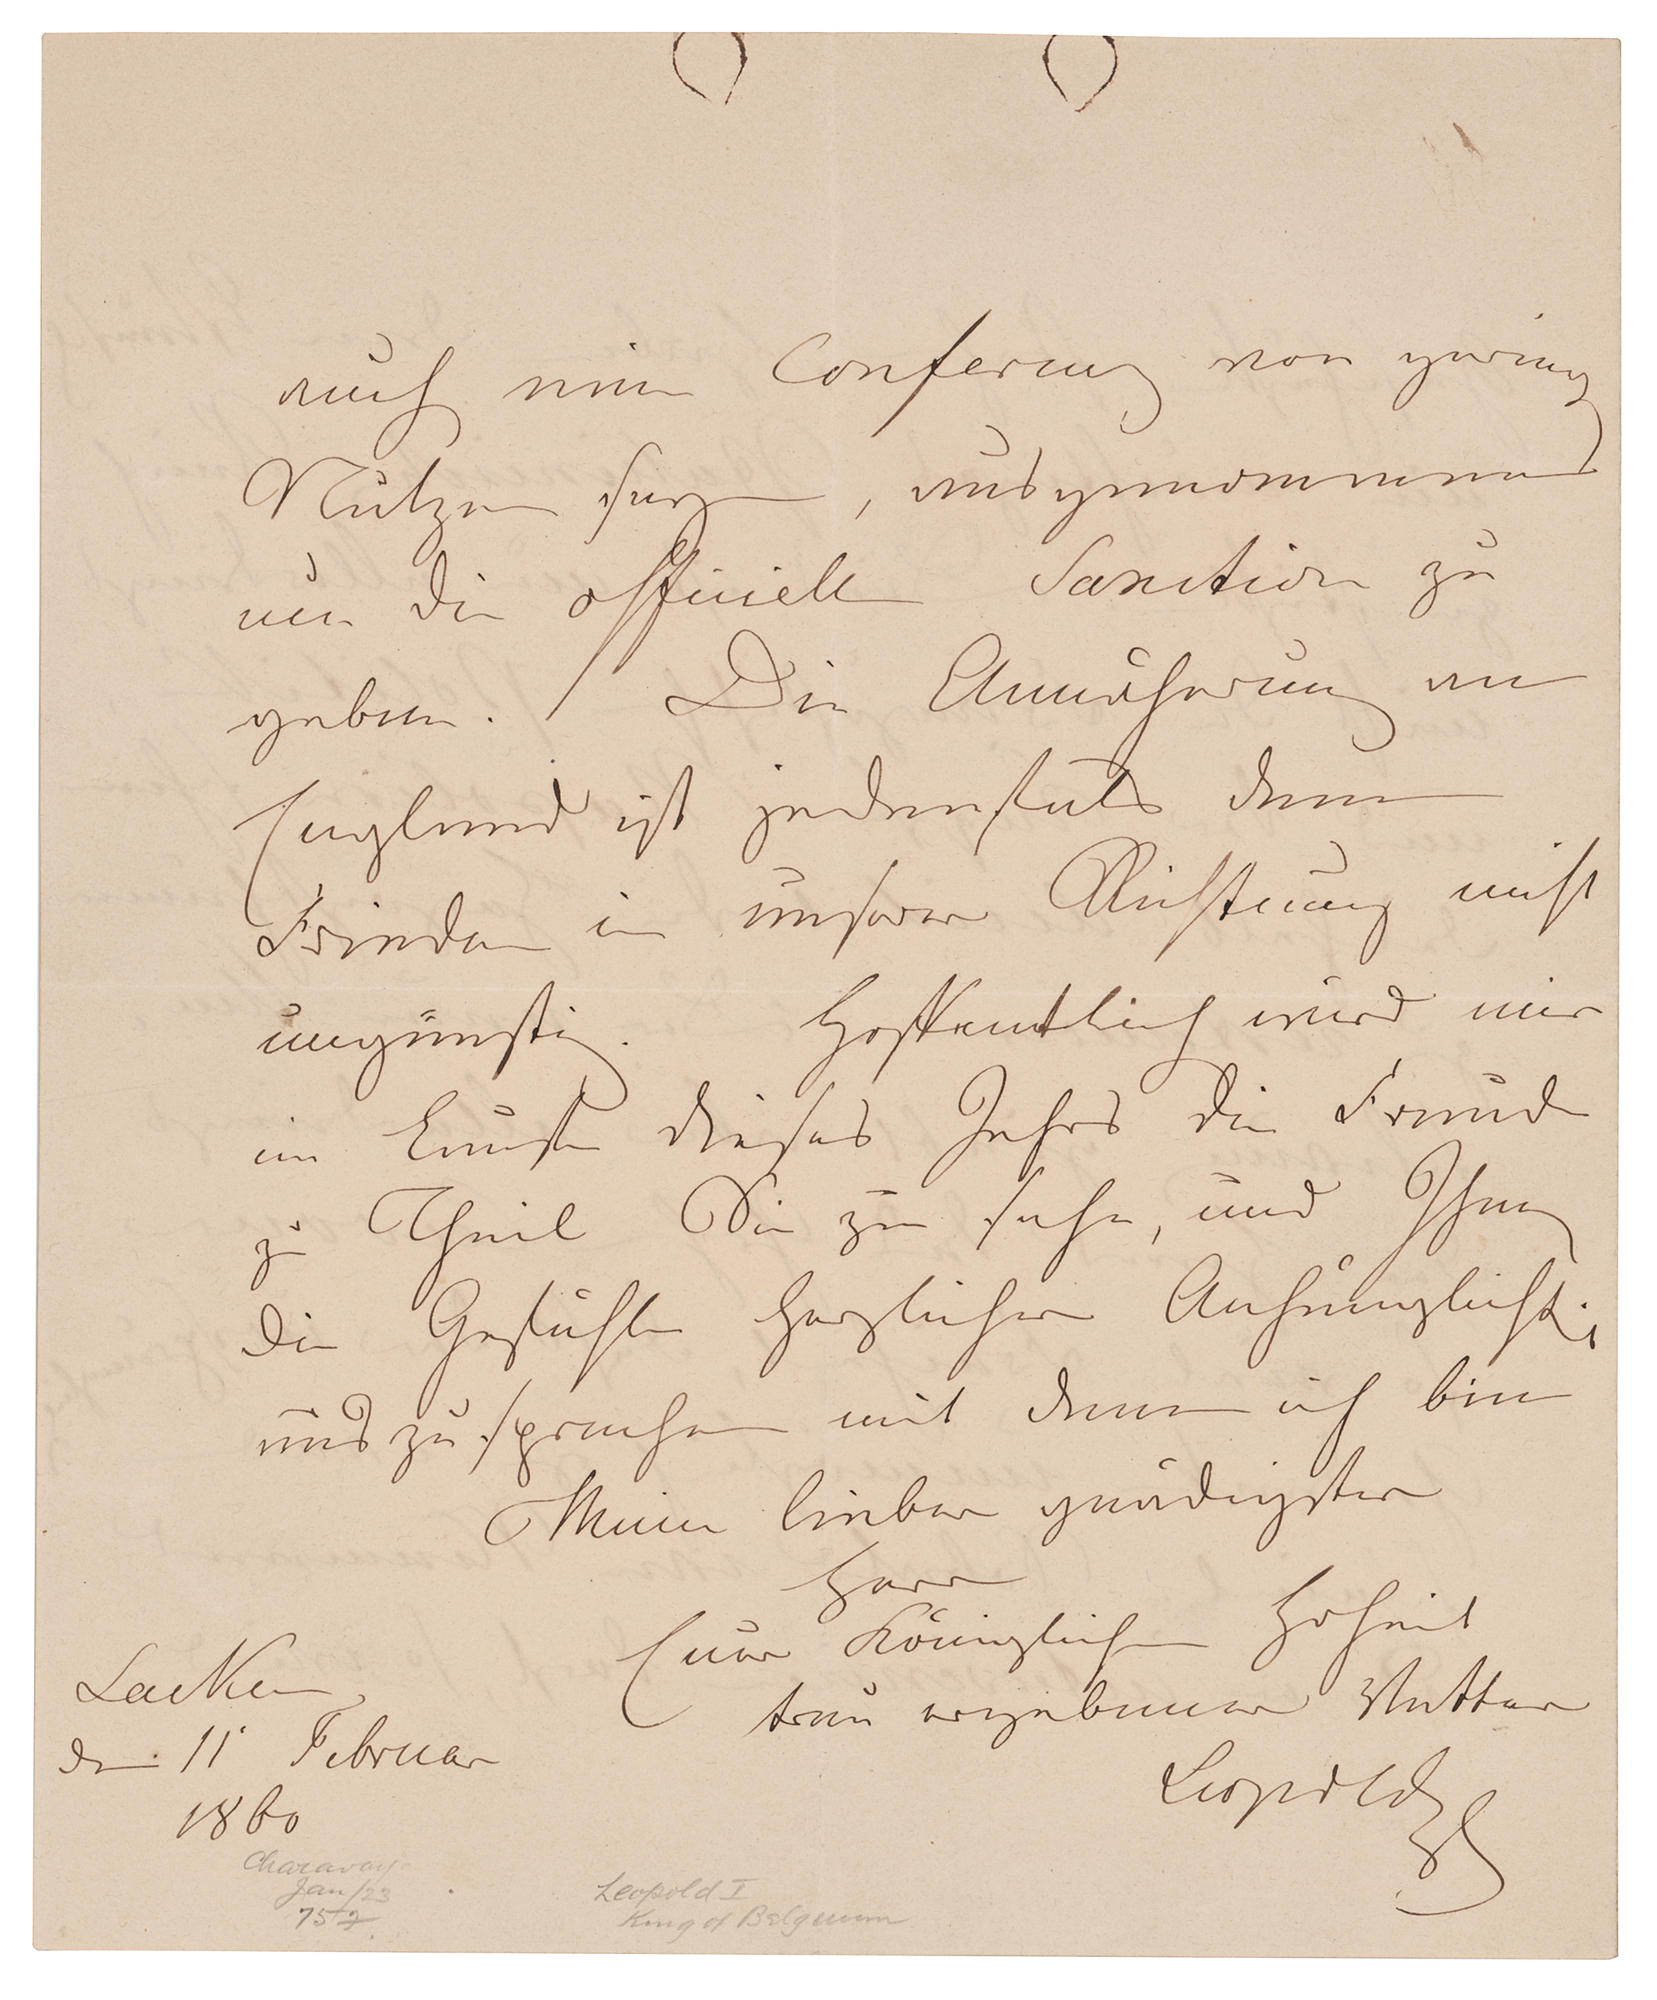 auch eine Conferenz von gering
Nutzen seyn, ausgenommen
um die officielle Sanction zu
geben. Die Annäherung an
England ist jedenfals dem
Frieden in unserer Richtung nicht
ungünstig. Hoffentlich wird mir
im Laufe dieses Jahrs die Freude
zu Theil Sie zu sehn, und Ihnen
die Gefühle herzlicher Anhänglichk.
auszusprechen mit denen ich bin
Mein lieber gnädigster
Herr
Eurer Königlichen Hoheit
treu ergebener Vetter
Leopold
Laeken
den 11 Februar
1860
Charavay
Jan/23
757
Leopold I
King of Belgium